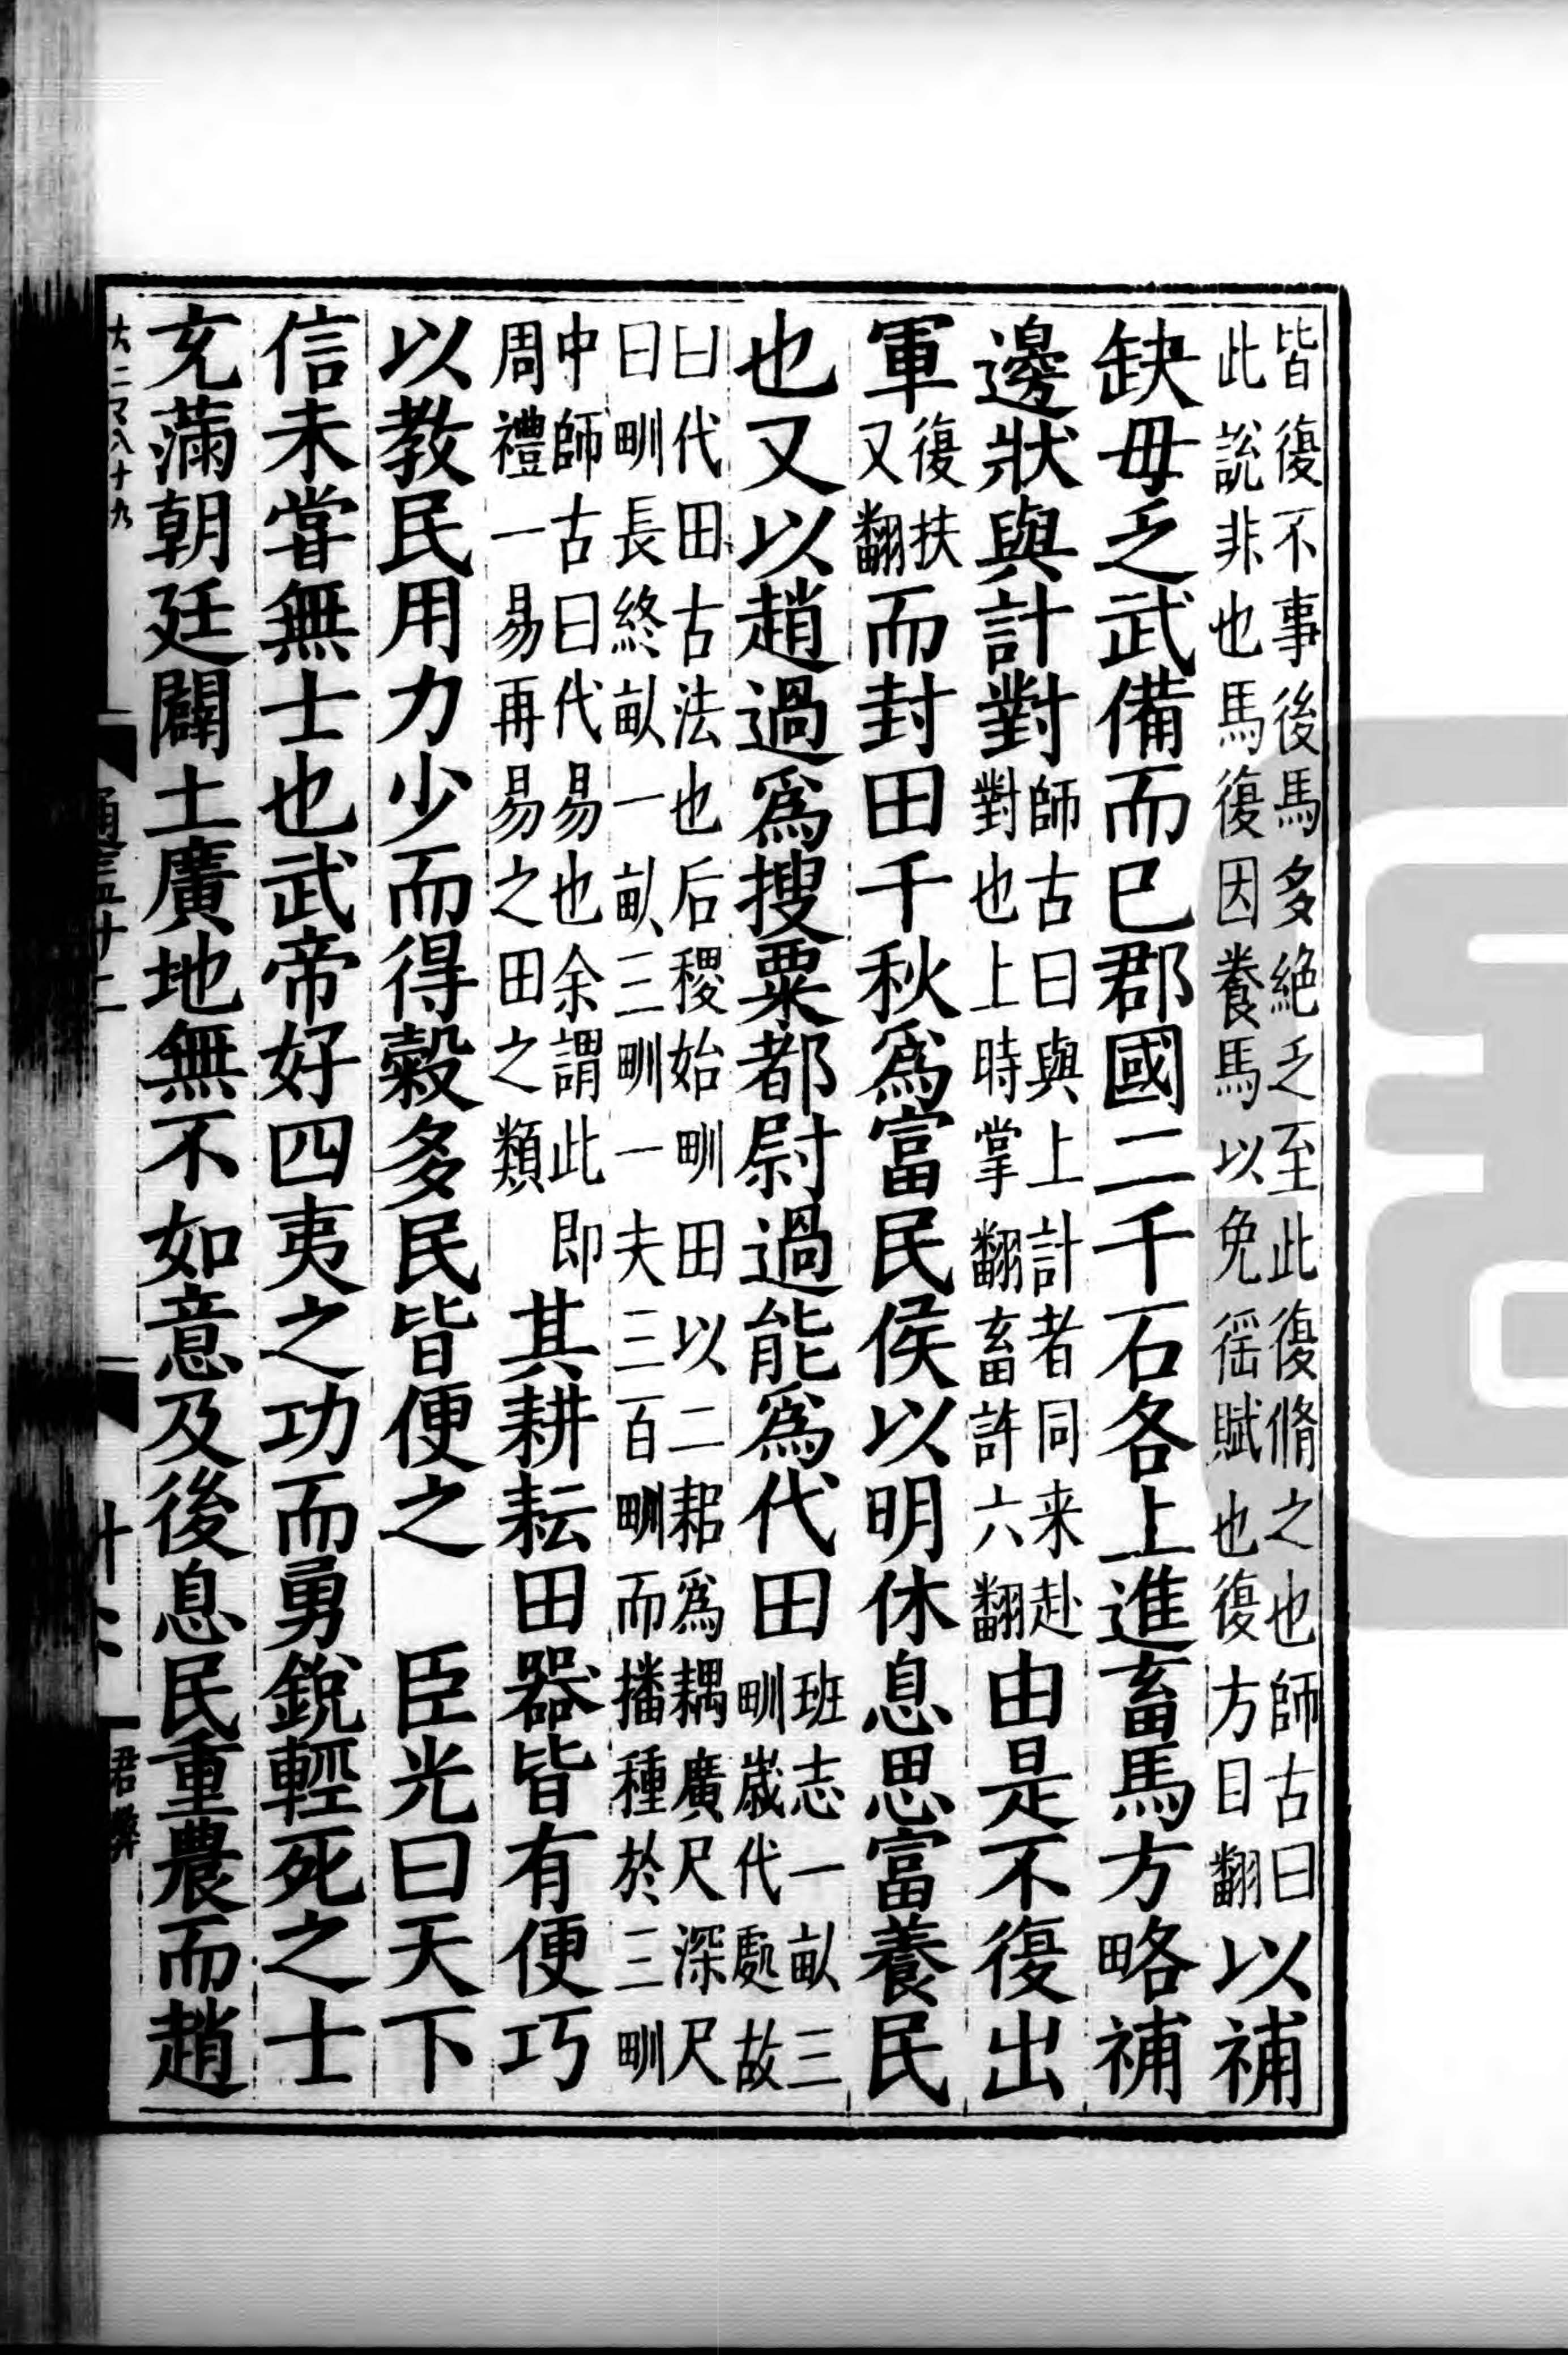 皆復不事後馬多絶乏至此復脩之也師古曰
此説非也馬復因養馬以免徭賦也復方目翻
以補
缺毋乏武備而已郡國二千石各上進畜馬方略補
邊狀與計對
師古曰與上計者同来赴
對也上時掌翻畜許六翻
由是不復出
軍
復扶
又翻
而封田千秋爲富民侯以明休息思富養民
也又以趙過爲搜粟都尉過能爲代田
班志一畝三
甽歲代處故
曰代田古法也后稷始甽田以二耜爲耦廣尺深尺
曰甽長終畝一畝三甽一夫三百甽而播種於三甽
中師古曰代易也余謂此即
周禮一易再易之田之類
其耕耘田器皆有便巧
以教民用力少而得穀多民皆便之　臣光曰天下
信未嘗無士也武帝好四夷之功而勇銳輕死之士
充滿朝廷闢土廣地無不如意及後息民重農而趙